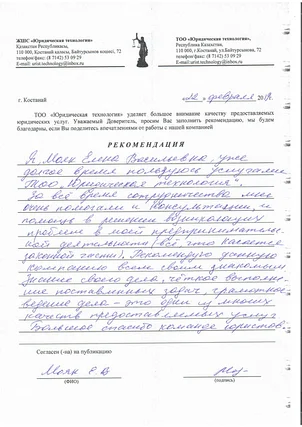 ЖШС «Юридическая технология»
Казакстан Республикасы,
110 000, Қостанай қаласы, Байтурсынов көшесі, 72
телефон/факс (8 7142) 53 09 29
E-mail: urist.technology@inbox.ru
ТОО «Юридическая технология»
Республика Казахстан,
110 000, г.Костанай, ул.Байтурсынова, 72
телефон/факс: (8 7142) 53 09 29
E-mail: urist.technology@inbox.ru
г. Костанай
«12» февраля 20
ТОО «Юридическая технология» уделяет большое внимание качеству предоставляемых
юридических услуг. Уважаемый Доверитель, просим Вас заполнить рекомендацию, мы будем
благодарны, если Вы поделитесь впечатлениями от работы с нашей компанией
РЕКОМЕНДАЦИЯ
Я, Маяк Елена Васильевна, уже
долгое время пользуюсь услугами
ТОО "Юридическая технология".
За всё время сотрудничества мне
помогали и консультации, и
помощь в решении возникающих
проблем в моей предприниматель-
ской деятельности (всё что касается
законной части). Рекомендую данную
компанию всем своим знакомым.
Знание своего дела, чёткое выполне-
ние поставленных задач, грамотное
ведение дела - это одни из многих
качеств предоставляемых услуг
Большое спасибо команде юристов.
Согласен (-на) на публикацию
Маяк Е.В.
(ФИО)
(подпись)